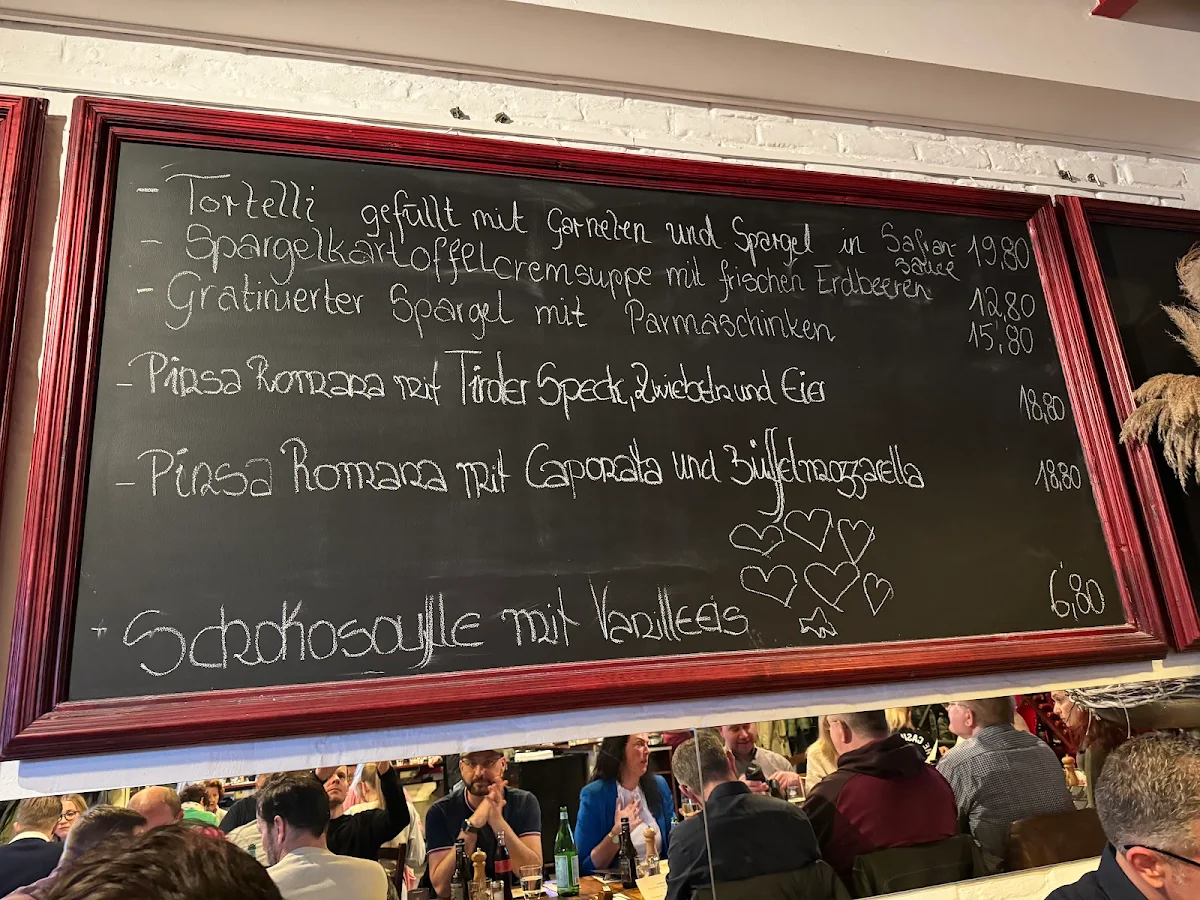 - Tortelli gefüllt mit Garnelen und Spargel in Safran- 19,80
sauce
- Spargelkartoffelcremsuppe mit frischen Erdbeeren 12,80
- Gratinierter Spargel mit Parmaschinken 15,80
- Pinsa Romana mit Tiroler Speck, Zwiebeln und Eier 18,80
- Pinsa Romana mit Caponata und Büffelmozzarella 18,80
+ Schokosouflle mit Vanilleeis 6,80